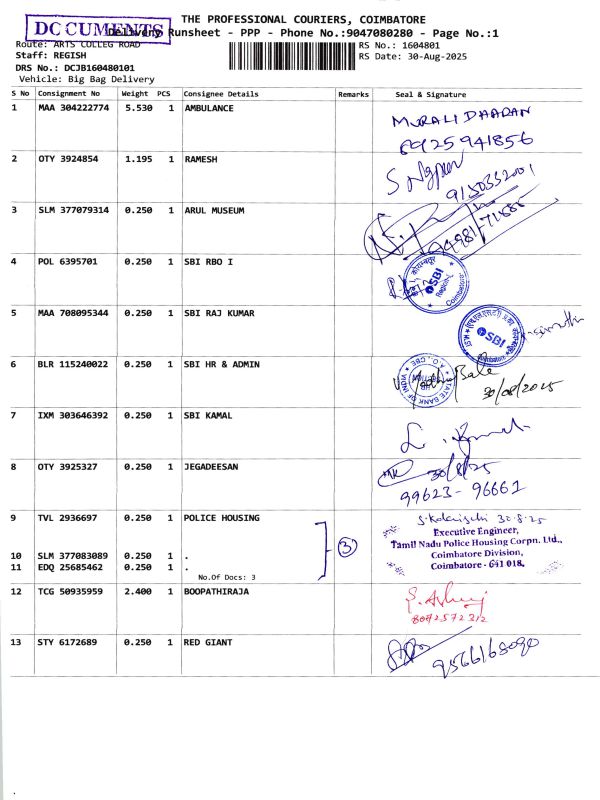 THE PROFESSIONAL COURIERS, COIMBATORE
DOCUMENTS
Delivery Runsheet - PPP - Phone No.:9047080280 - Page No.:1
Route: ARTS COLLEG ROAD
RS No.: 1604801
Staff: REGISH
RS Date: 30-Aug-2025
DRS No.: DCJB160480101
Vehicle: Big Bag Delivery
S No Consignment No Weight PCS Consignee Details Remarks Seal & Signature
1 MAA 304222774 5.530 1 AMBULANCE
MURALI DHARAN
6925941856
2 OTY 3924854 1.195 1 RAMESH
9150352001
3 SLM 377079314 0.250 1 ARUL MUSEUM
4 POL 6395701 0.250 1 SBI RBO I
SBI
5 MAA 708095344 0.250 1 SBI RAJ KUMAR
SBI
Coimbatore
6 BLR 115240022 0.250 1 SBI HR & ADMIN
STATE BANK OF INDIA
30/08/2025
7 IXM 303646392 0.250 1 SBI KAMAL
8 OTY 3925327 0.250 1 JEGADEESAN
30/8/25
99623-96661
9 TVL 2936697 0.250 1 POLICE HOUSING
30-8-25
Executive Engineer,
Tamil Nadu Police Housing Corpn. Ltd.,
10 SLM 377083089 0.250 1 .
3
Coimbatore Division,
11 EDQ 25685462 0.250 1 .
Coimbatore - 641 018.
No.Of Docs: 3
12 TCG 50935959 2.400 1 BOOPATHIRAJA
8072572312
13 STY 6172689 0.250 1 RED GIANT
9566168090